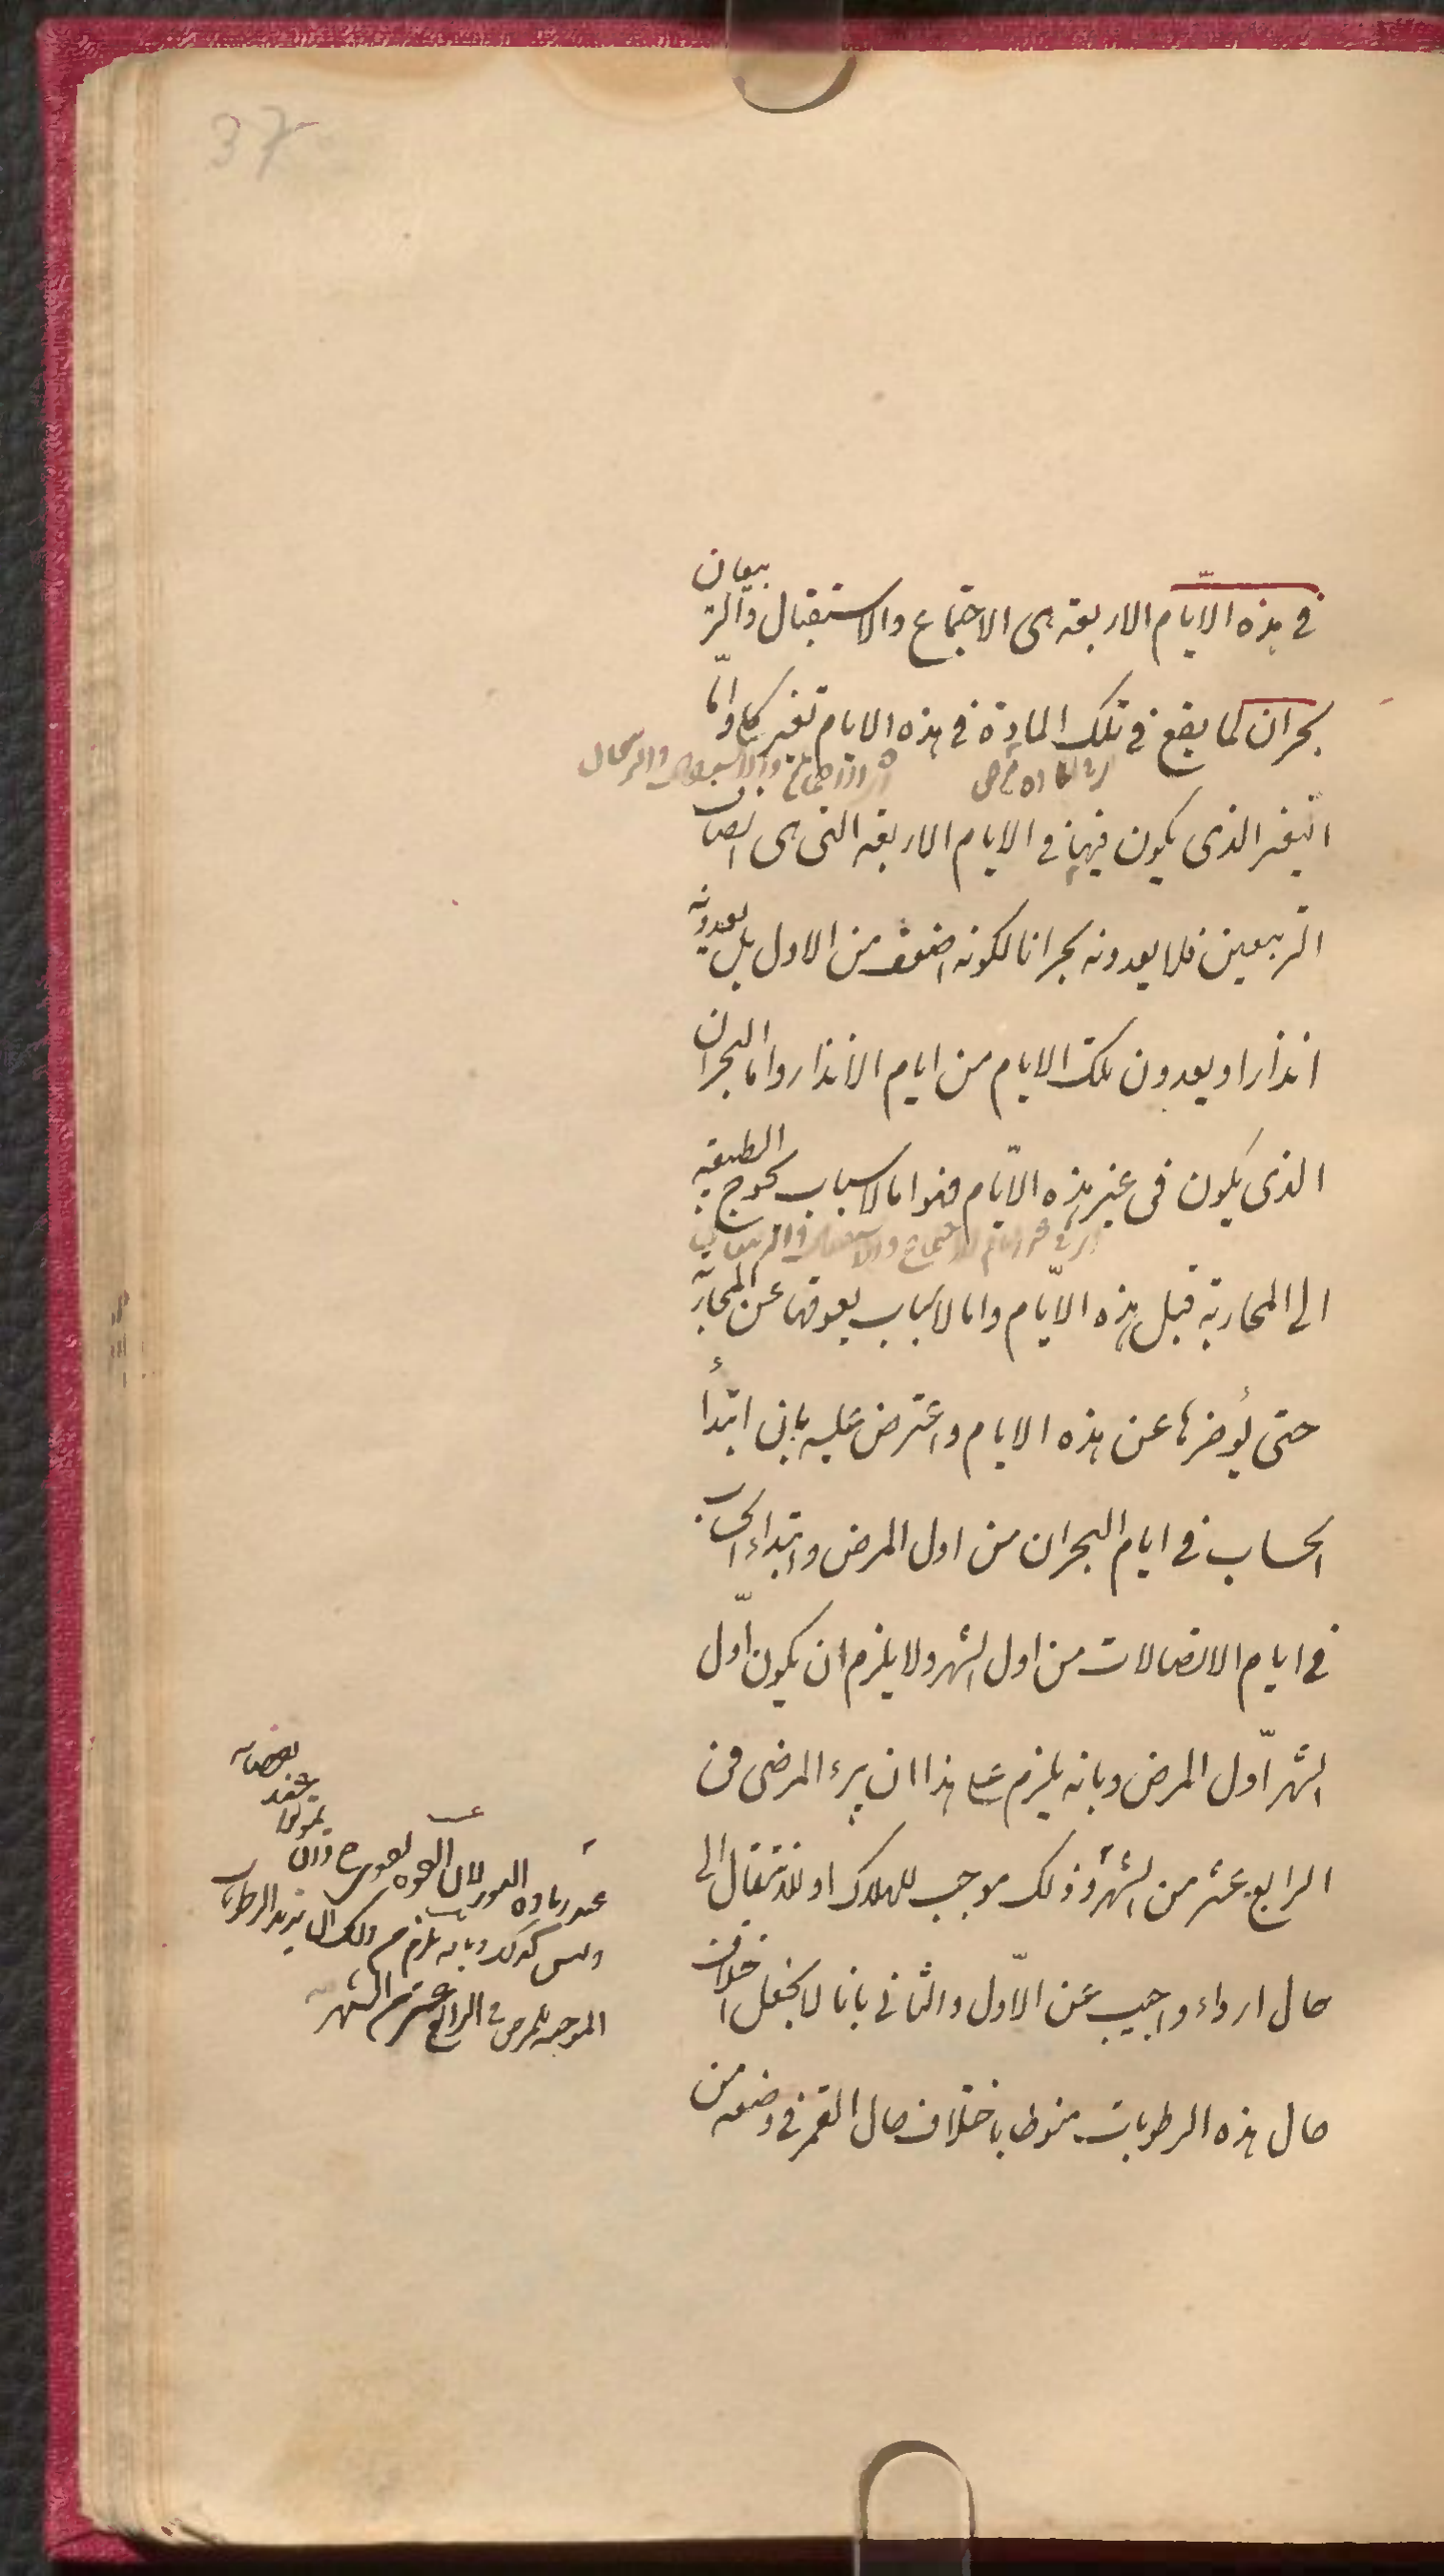 37
في هذه الايّام الاربعة هى الاجتماع والاستقبال والتربيعان
بحران لما يقع في تلك المادة في هذه الايام تغير كما وامّا
التغير الذى يكون فيها في الايام الاربعة التى هى انصاف
التربيعين فلا يعدونه بحرانا لكونه اضعف من الاول بل يعدونه
انذارا ويعدون تلك الايام من ايام الانذار واما البحران
الذى يكون في غير هذه الايّام فهو اما لاسباب تحوج الطبيعة
الى المحاربة قبل هذه الايّام واما لاسباب يعوقها عن المحاربة
حتى يؤخرها عن هذه الايام واعترض عليه بان ابتدأ
الحساب في ايام البحران من اول المرض وابتداء الحساب
في ايام الاتصالات من اول الشهر ولا يلزم ان يكون اوّل
الشهر اوّل المرض وبانه يلزم على هذا ان يبرء المرضى في
الرابع عشر من الشهر وذلك موجب للهلاك او للانتقال الى
حال ارداء واجيب عن الاوّل والثاني بانا لا نجعل اختلاف
حال هذه الرطوبات منوطا باختلاف حال القمر في وضعه من
عند زيادة النور لان القوة
وليس كذلك وبانه يلزم من ذلك ان يزيد الرطوبات
الموجبة للمرض في الرابع عشر من الشهر